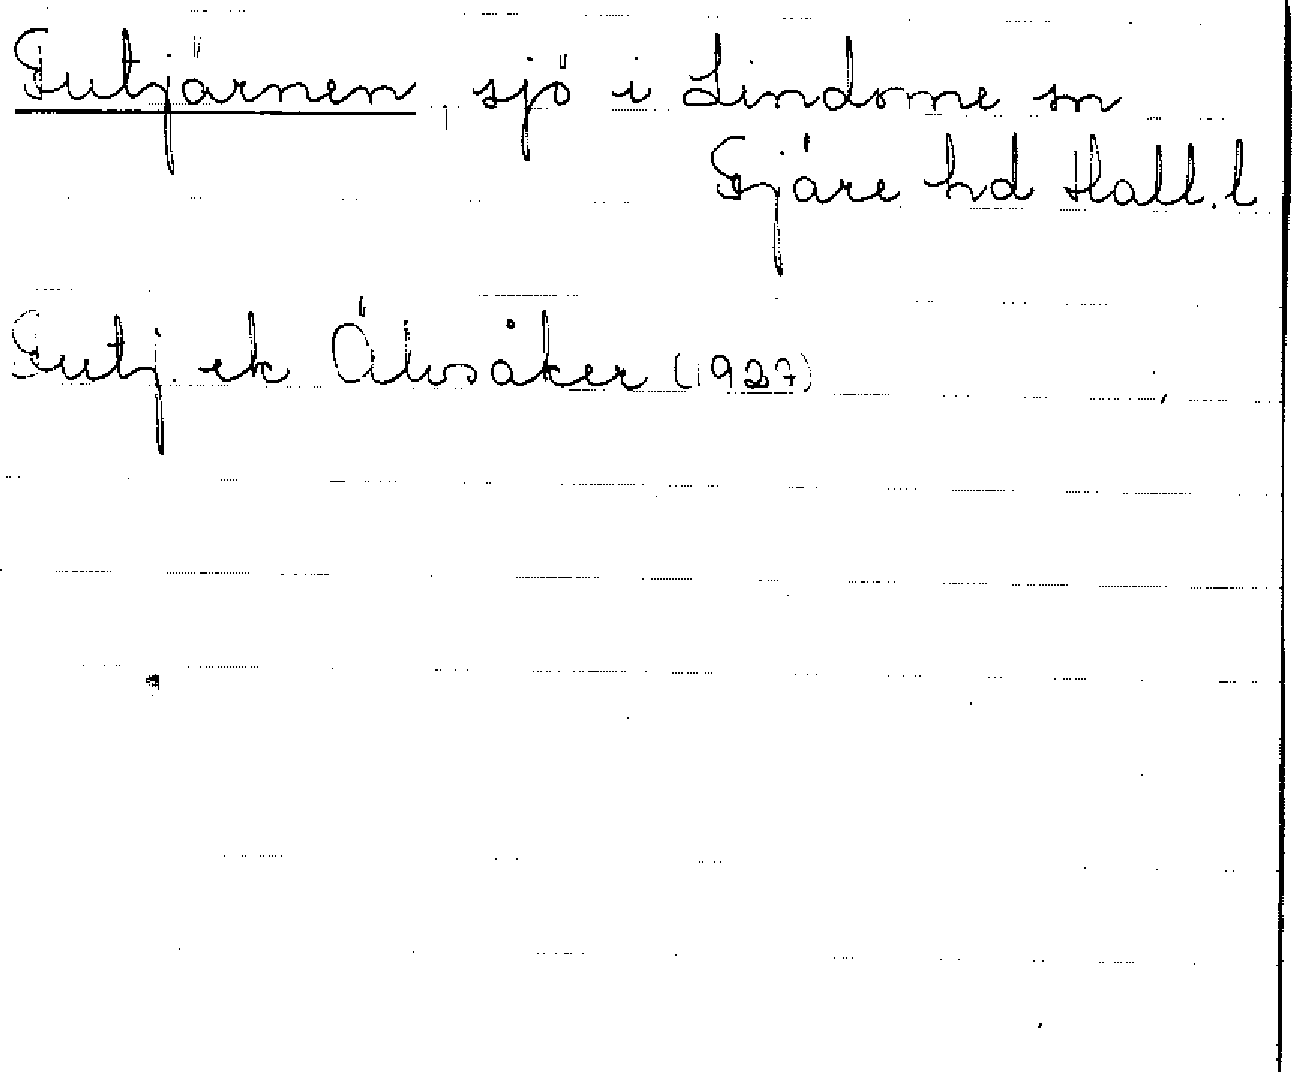 Futjärnen sjö i Lindome sn
Fjäre hd Hall. l
Futj. ek Älvsåker (1927)